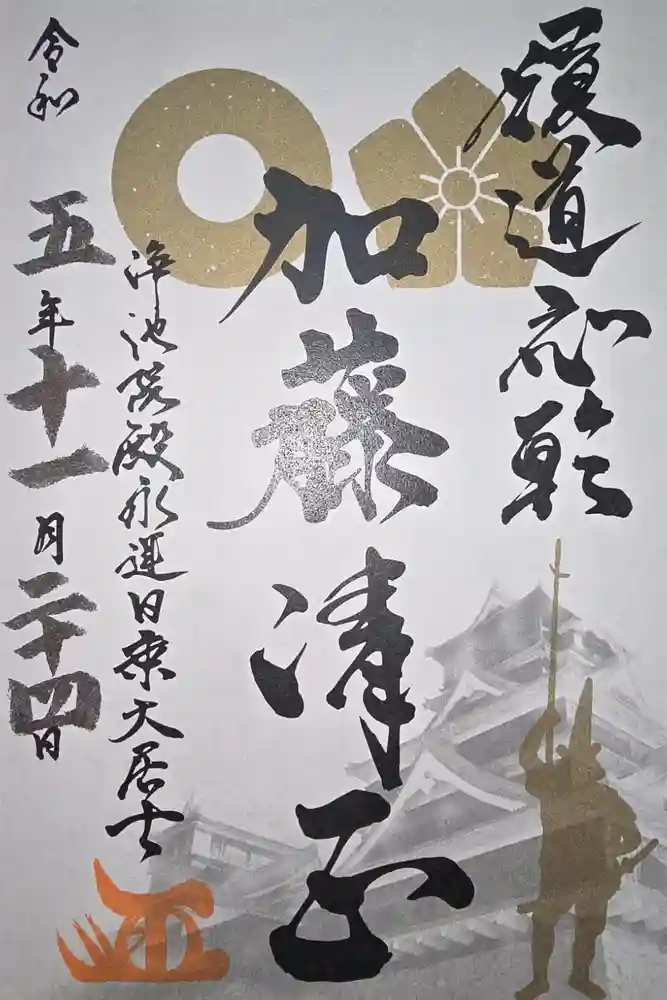 履道応乾
加藤清正
浄池院殿永運日乗大居士
令和五年十一月二十四日